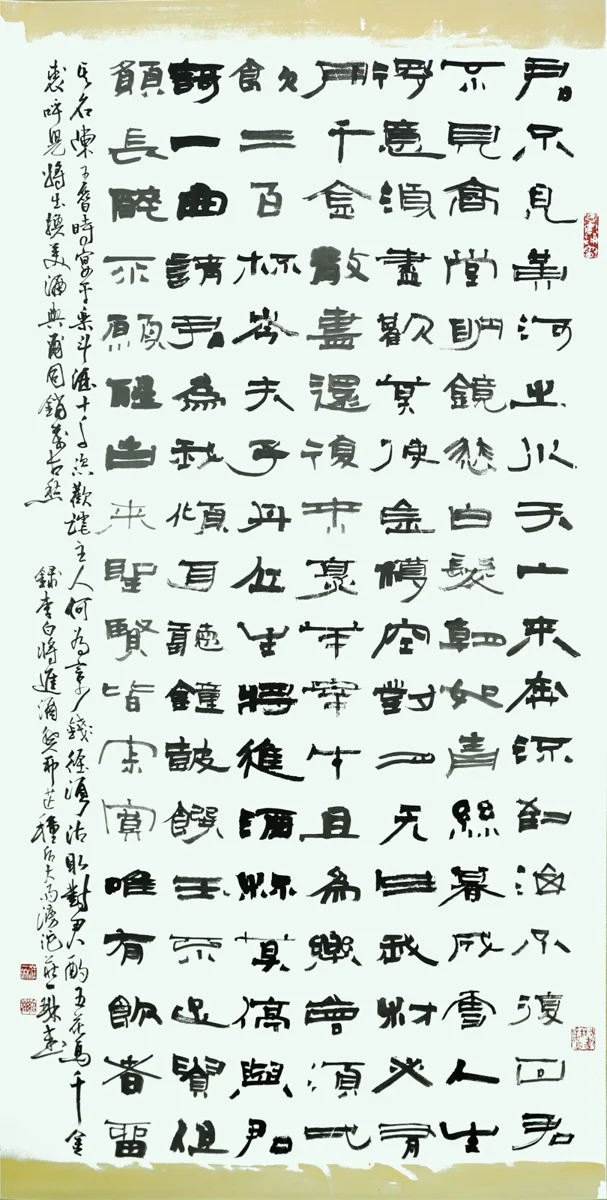 君不見黃河之水天上來奔流到海不復回君
不見高堂明鏡悲白髮朝如青絲暮成雪人生
得意須盡歡莫使金樽空對月天生我材必有
用千金散盡還復來烹羊宰牛且為樂會須一
飲三百杯岑夫子丹丘生將進酒杯莫停與君
謌一曲請君為我傾耳聽鐘鼓饌玉不足貴但
願長醉不願醒古來聖賢皆寂寞唯有飲者留
其名陳王昔時宴平樂斗酒十千恣歡謔主人何為言少錢徑須沽取對君酌五花馬千金
裘呼兒將出換美酒與爾同銷萬古愁 錄李白將進酒癸卯芒種后大雨滂沱莊一書